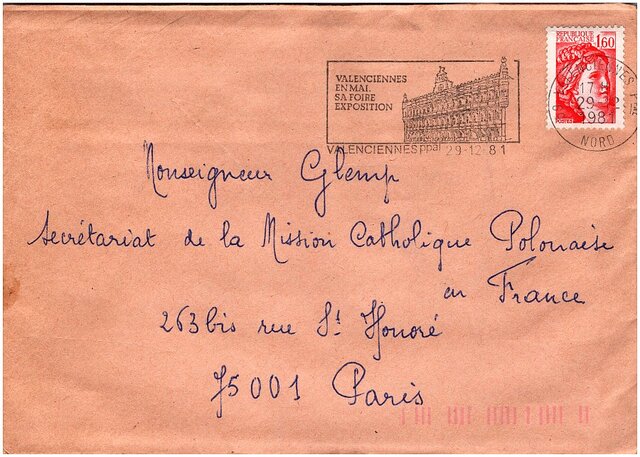 REPUBLIQUE
FRANÇAISE
1,60
VALENCIENNES
EN MAI.
SA FOIRE
EXPOSITION
VALENCIENNES ppal 29-12-81
17
29-12
1981
NORD
Monseigneur Glemp
Secrétariat de la Mission Catholique Polonaise
en France
263bis rue St Honoré
75001 Paris